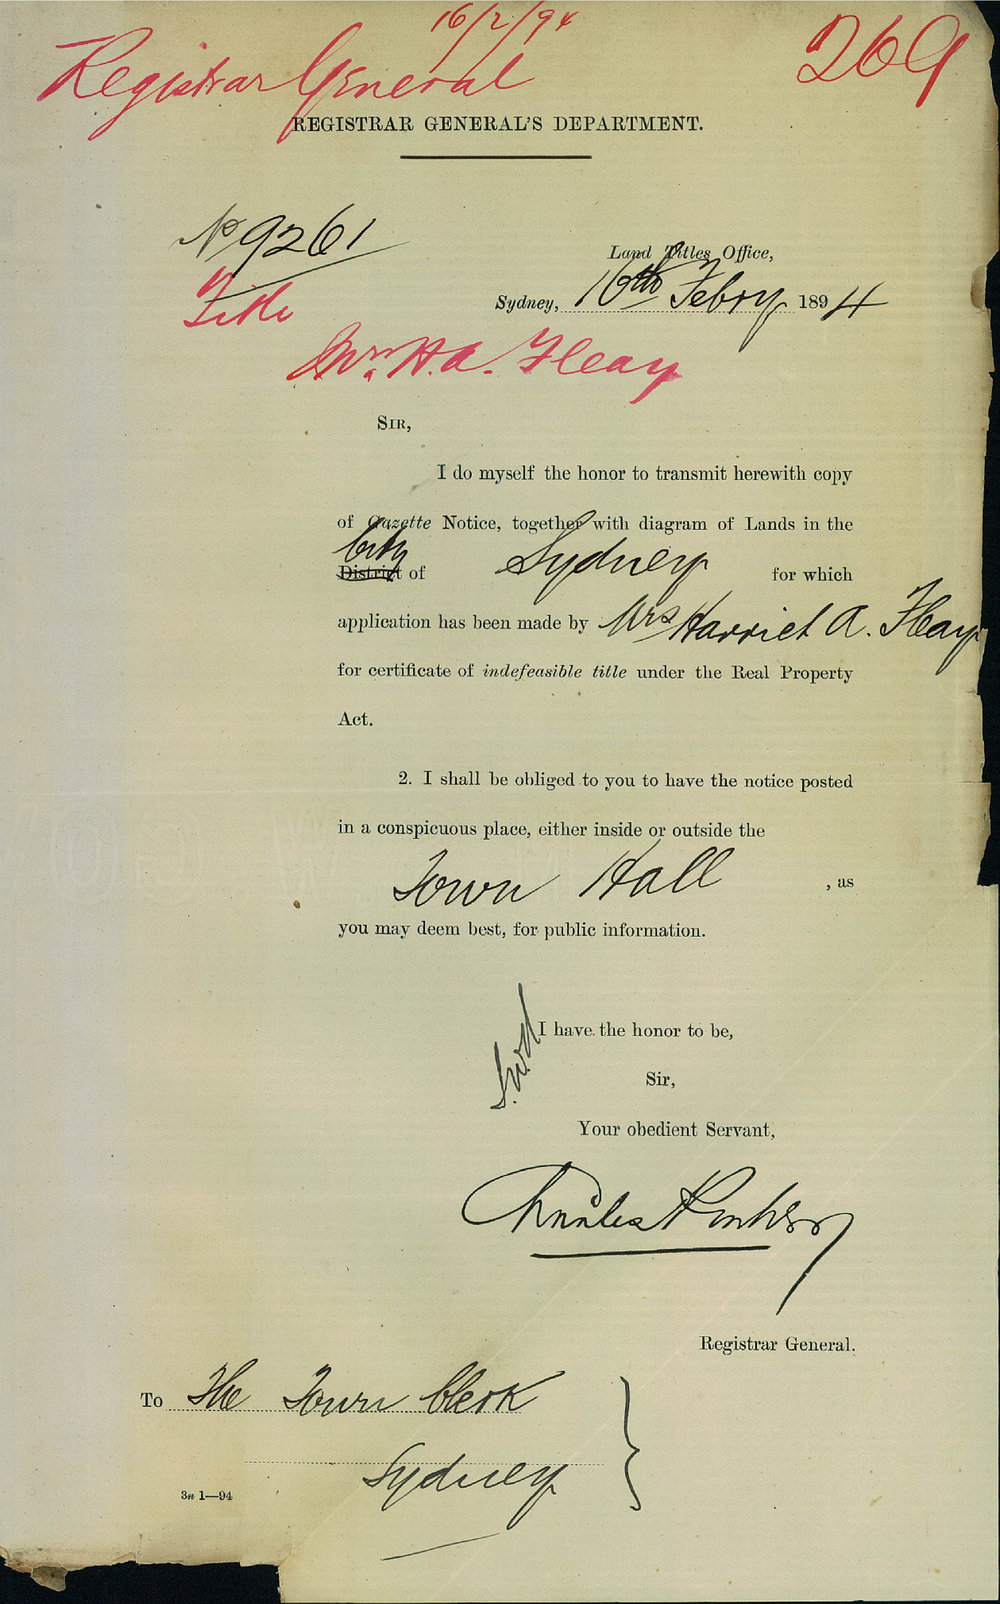 16/2/94
Registrar General
269
REGISTRAR GENERAL'S DEPARTMENT.
No 9261
Land Titles Office,
Title
Sydney, 16th Febry 1894
H. A. Fleay
SIR,
I do myself the honor to transmit herewith copy
of Gazette Notice, together with diagram of Lands in the
City
District of Sydney for which
application has been made by Mrs Harriet A. Fleay
for certificate of indefeasible title under the Real Property
Act.
2. I shall be obliged to you to have the notice posted
in a conspicuous place, either inside or outside the
Town Hall , as
you may deem best, for public information.
I have the honor to be,
Sir,
Your obedient Servant,
Charles
Registrar General.
To The Town Clerk
Sydney
3n 1—94